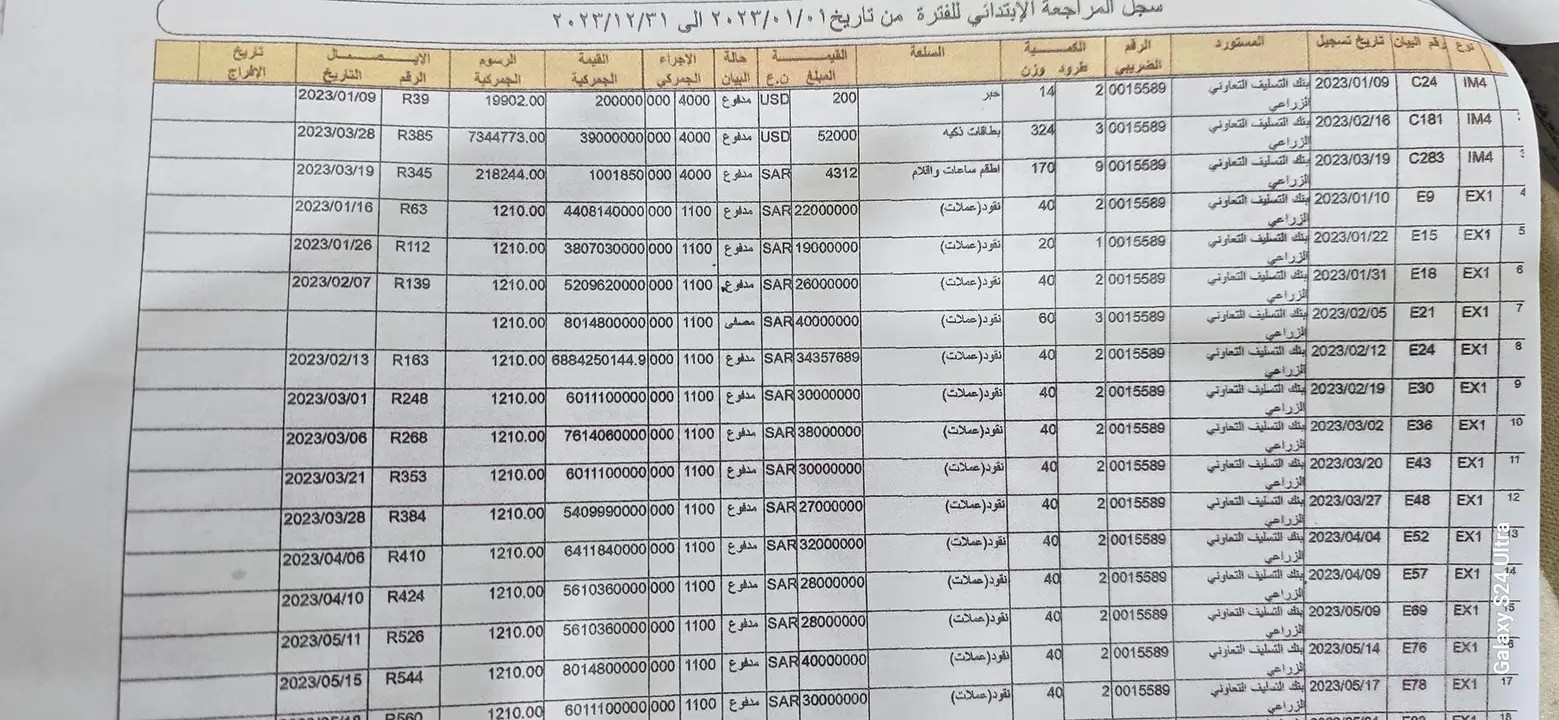 سجل المراجعة الإبتدائي للفترة من تاريخ ٢٠٢٣/٠١/٠١ الى ٢٠٢٣/١٢/٣١
نوع رقم البيان تاريخ تسجيل المستورد الرقم الضريبي الكمية طرود وزن السلعة القيمة المبلغ ن.ع حالة البيان الإجراء الجمركي القيمة الجمركية الرسوم الجمركية الايصال الرقم التاريخ تاريخ الإفراج
IM4 C24 2023/01/09 بنك التسليف التعاوني الزراعي 0015589 2 14 حبر 200 USD مدفوع 4000 000 200000 19902.00 R39 2023/01/09
IM4 C181 2023/02/16 بنك التسليف التعاوني الزراعي 0015589 3 324 بطاقات ذكيه 52000 USD مدفوع 4000 000 39000000 7344773.00 R385 2023/03/28
3 IM4 C283 2023/03/19 بنك التسليف التعاوني الزراعي 0015589 9 170 اطقم ساعات واقلام 4312 SAR مدفوع 4000 000 1001850 218244.00 R345 2023/03/19
4 EX1 E9 2023/01/10 بنك التسليف التعاوني الزراعي 0015589 2 40 نقود(عملات) 22000000 SAR مدفوع 1100 000 4408140000 1210.00 R63 2023/01/16
5 EX1 E15 2023/01/22 بنك التسليف التعاوني الزراعي 0015589 1 20 نقود(عملات) 19000000 SAR مدفوع 1100 000 3807030000 1210.00 R112 2023/01/26
6 EX1 E18 2023/01/31 بنك التسليف التعاوني الزراعي 0015589 2 40 نقود(عملات) 26000000 SAR مدفوع 1100 000 5209620000 1210.00 R139 2023/02/07
7 EX1 E21 2023/02/05 بنك التسليف التعاوني الزراعي 0015589 3 60 نقود(عملات) 40000000 SAR مصفى 1100 000 8014800000 1210.00
8 EX1 E24 2023/02/12 بنك التسليف التعاوني الزراعي 0015589 2 40 نقود(عملات) 34357689 SAR مدفوع 1100 000 6884250144.9 1210.00 R163 2023/02/13
9 EX1 E30 2023/02/19 بنك التسليف التعاوني الزراعي 0015589 2 40 نقود(عملات) 30000000 SAR مدفوع 1100 000 6011100000 1210.00 R248 2023/03/01
10 EX1 E36 2023/03/02 بنك التسليف التعاوني الزراعي 0015589 2 40 نقود(عملات) 38000000 SAR مدفوع 1100 000 7614060000 1210.00 R268 2023/03/06
11 EX1 E43 2023/03/20 بنك التسليف التعاوني الزراعي 0015589 2 40 نقود(عملات) 30000000 SAR مدفوع 1100 000 6011100000 1210.00 R353 2023/03/21
12 EX1 E48 2023/03/27 بنك التسليف التعاوني الزراعي 0015589 2 40 نقود(عملات) 27000000 SAR مدفوع 1100 000 5409990000 1210.00 R384 2023/03/28
13 EX1 E52 2023/04/04 بنك التسليف التعاوني الزراعي 0015589 2 40 نقود(عملات) 32000000 SAR مدفوع 1100 000 6411840000 1210.00 R410 2023/04/06
14 EX1 E57 2023/04/09 بنك التسليف التعاوني الزراعي 0015589 2 40 نقود(عملات) 28000000 SAR مدفوع 1100 000 5610360000 1210.00 R424 2023/04/10
15 EX1 E69 2023/05/09 بنك التسليف التعاوني الزراعي 0015589 2 40 نقود(عملات) 28000000 SAR مدفوع 1100 000 5610360000 1210.00 R526 2023/05/11
EX1 E76 2023/05/14 بنك التسليف التعاوني الزراعي 0015589 2 40 نقود(عملات) 40000000 SAR مدفوع 1100 000 8014800000 1210.00 R544 2023/05/15
17 EX1 E78 2023/05/17 بنك التسليف التعاوني الزراعي 0015589 2 40 نقود(عملات) 30000000 SAR مدفوع 1100 000 6011100000 1210.00 R560
18
Galaxy S24 Ultra